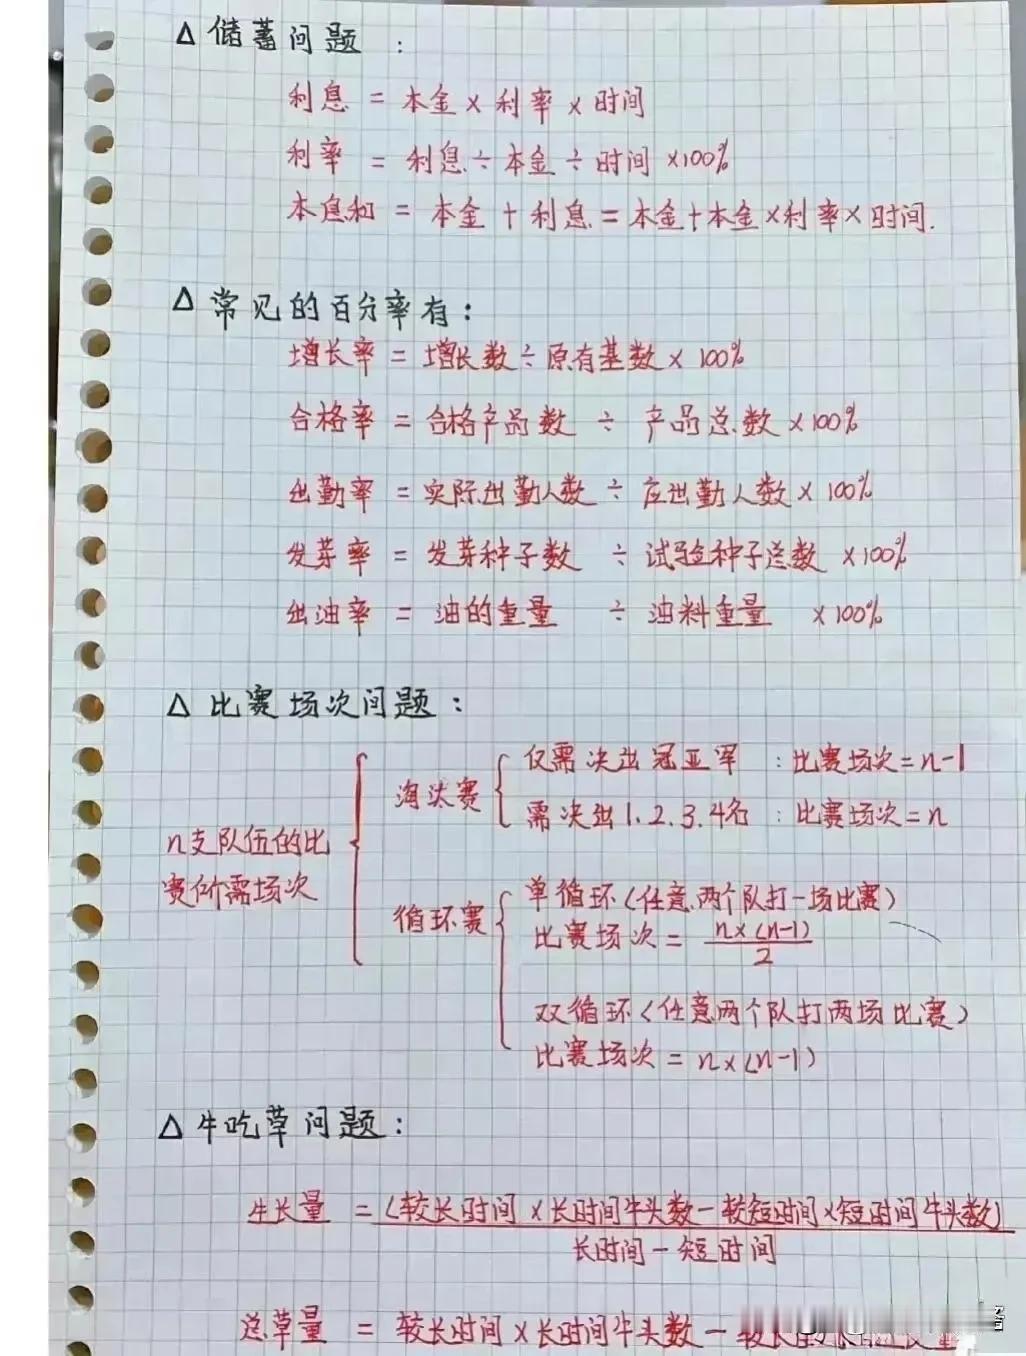 △ 储蓄问题：
利息 = 本金 × 利率 × 时间
利率 = 利息 ÷ 本金 ÷ 时间 ×100%
本息和 = 本金 + 利息 = 本金+本金×利率×时间.
△ 常见的百分率有：
增长率 = 增长数 ÷ 原有基数 × 100%
合格率 = 合格产品数 ÷ 产品总数 ×100%
出勤率 = 实际出勤人数 ÷ 应出勤人数 × 100%
发芽率 = 发芽种子数 ÷ 试验种子总数 ×100%
出油率 = 油的重量 ÷ 油料重量 ×100%
△ 比赛场次问题：
n支队伍的比
赛所需场次
淘汰赛
仅需决出冠亚军：比赛场次=n-1
需决出1.2.3.4名：比赛场次=n
循环赛
单循环(任意两个队打一场比赛)
比赛场次 = n×(n-1)
2
双循环(任意两个队打两场比赛)
比赛场次 = n×(n-1)
△ 牛吃草问题：
生长量 = (较长时间×长时间牛头数-较短时间×短时间牛头数)
长时间-短时间
总草量 = 较长时间×长时间牛头数-较长